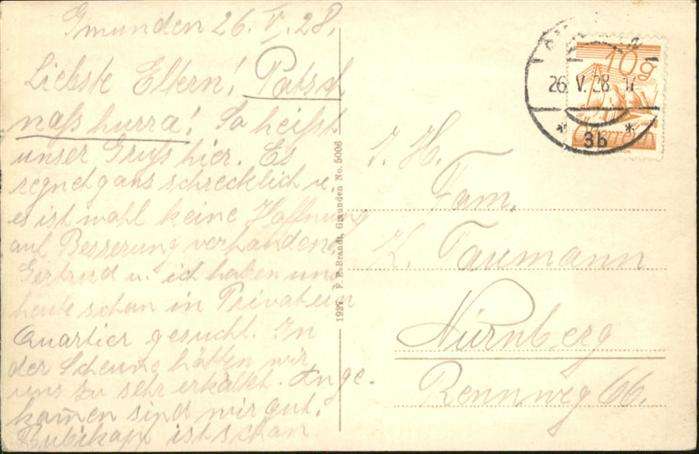 Gmunden 26. V. 28.
Liebste Eltern! Patsch
nass hurra! So heißt
unser Gruss hier. Es
regnet ganz schrecklich u.
es ist wohl keine Hoffnung
auf Besserung vorhanden.
Gertrud u. ich haben uns
heute schon in Privat
Quartier gesucht. In
der Scheune hätten wir
uns zu sehr erkältet. Ange-
kommen sind wir gut.
ist schon
1927. F. E. Brandt, Gmunden No. 5006
10g
Österreich
26. V. 28
* 3b *
Fam.
K. Taumann
Nürnberg
Rennweg 66.